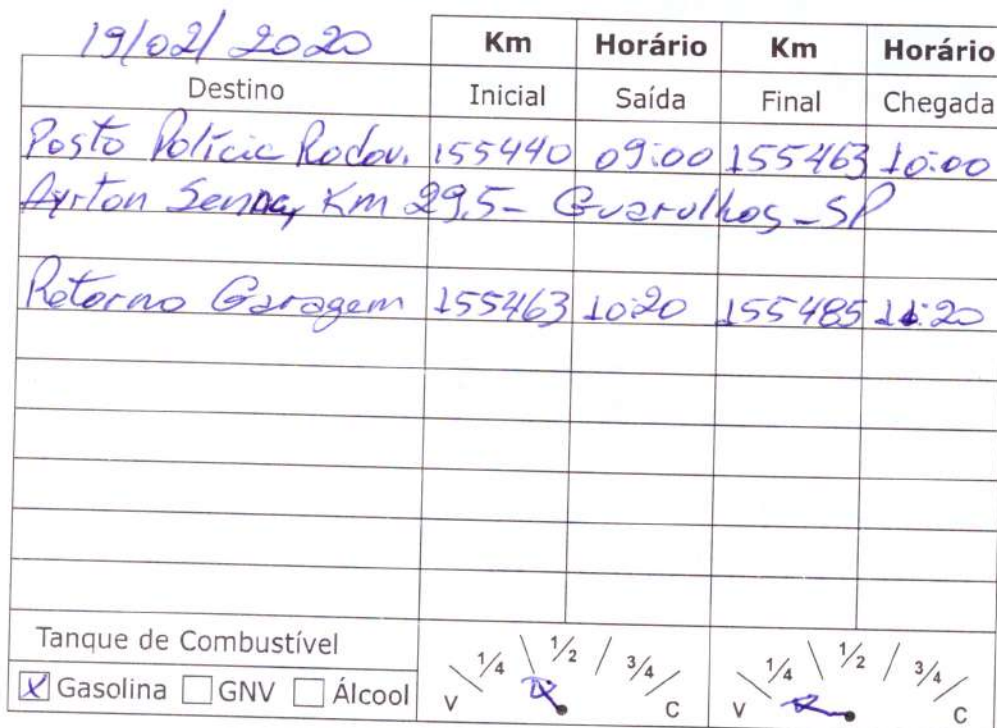 19/02/2020 Km Horário Km Horário
Destino Inicial Saída Final Chegada
Posto Polícia Rodov. 155440 09:00 155463 10:00
Ayrton Senna, Km 29,5 - Guarulhos - SP
Retorno Garagem 155463 10:20 155485 11:20
Tanque de Combustível
X Gasolina GNV Álcool
V 1/4 1/2 3/4 C V 1/4 1/2 3/4 C